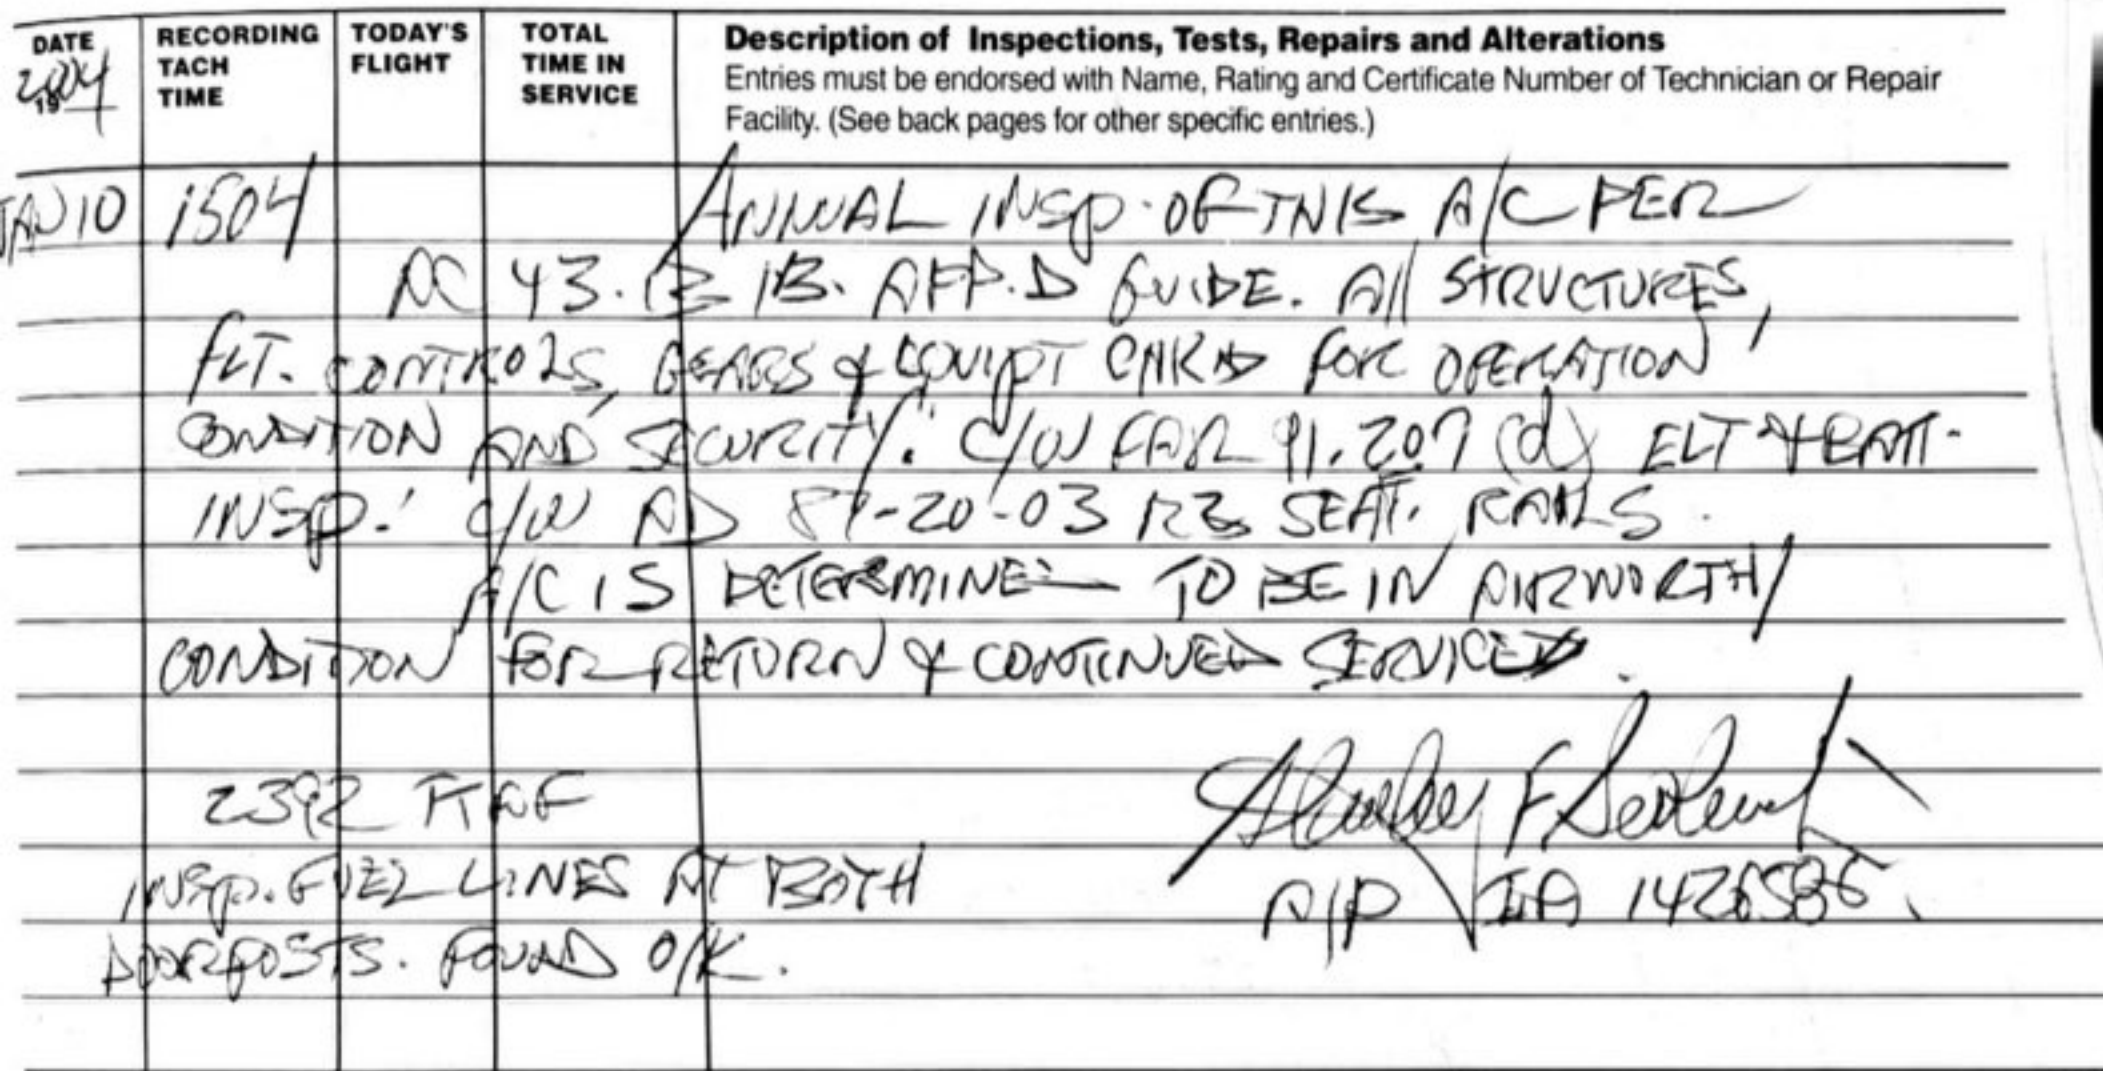 DATE RECORDING TODAY'S TOTAL Description of Inspections, Tests, Repairs and Alterations
2004 TACH FLIGHT TIME IN Entries must be endorsed with Name, Rating and Certificate Number of Technician or Repair
19 TIME SERVICE Facility. (See back pages for other specific entries.)
JAN 10 1504 ANNUAL INSP. OF THIS A/C PER
AC 43.13 1B. APP.D GUIDE. All STRUCTURES,
FLT. CONTROLS, GEARS & EQUIPT CHKD FOR OPERATION,
CONDITION AND SECURITY. C/W FAR 91.207 (d) ELT & BATT.
INSP. C/W AD 87-20-03 RE SEAT. RAILS.
A/C IS DETERMINED TO BE IN AIRWORTHY
CONDITION FOR RETURN & CONTINUED SERVICE.
2392
INSP. FUEL LINES AT BOTH
DOORPOSTS. FOUND O/K.
Stanley F
A/P IA